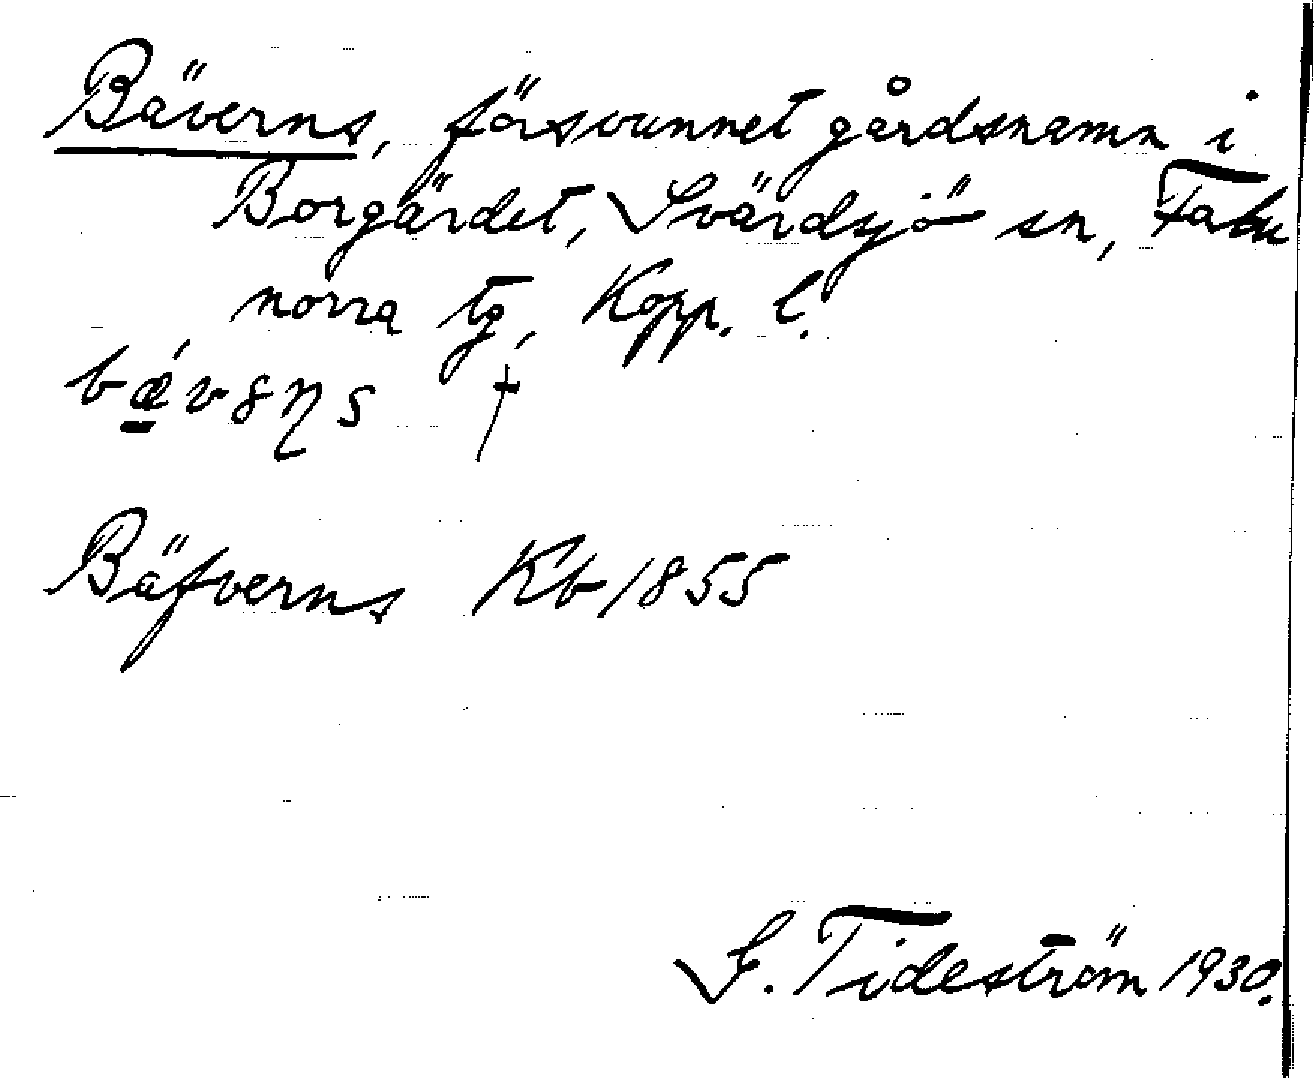 Bäverns, försvunnet gårdsnamn i
Borgärdet, Svärdsjö sn, Falu
norra tg, Kopp. l.
bǽv8ɳs †
Bäfverns Kb 1855
S. Tideström 1930.